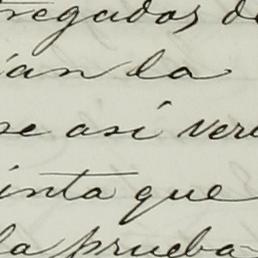 tregadas de
ían la
se así ver
inta que
la prueba